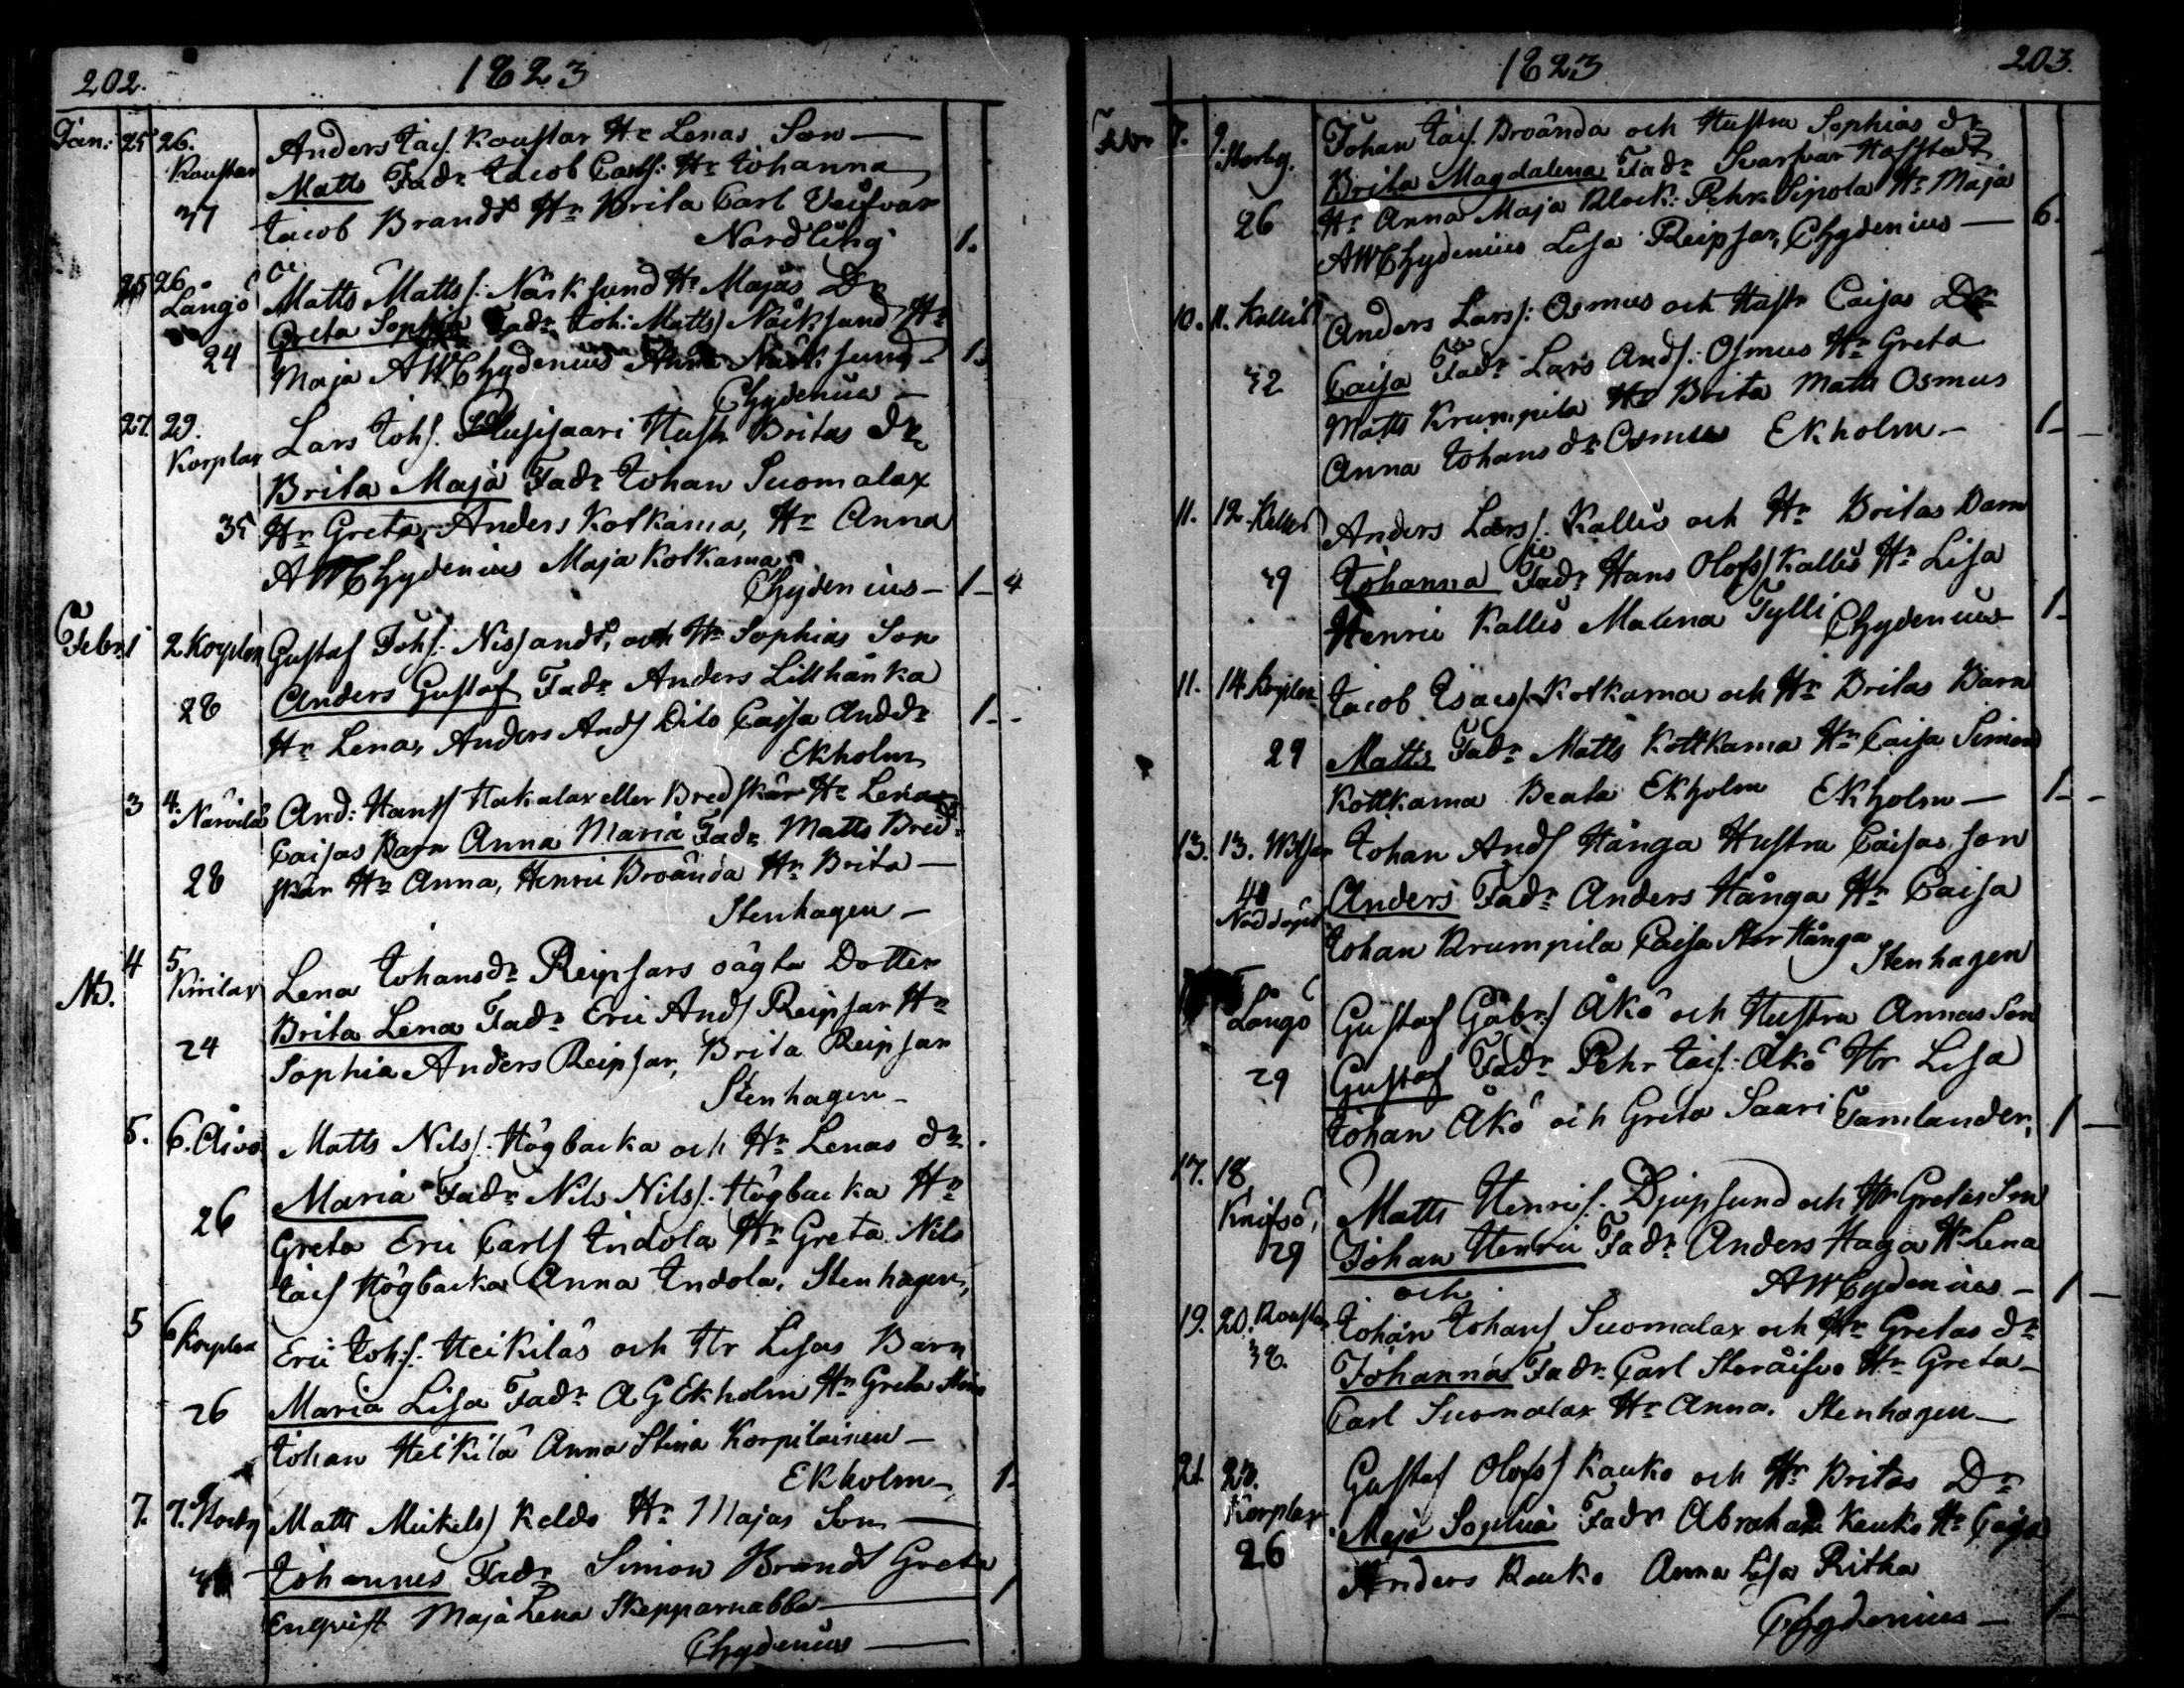 202.
1823
Jan: 25 26. Anders Jacs. Koustar Hr Lenas Son —
Koustar Matts Fadr Jacob Carls: Hr Johanna
37 Jacob Brandt Hr Brita Carl
Nordling 1.
25 26 Matts Matts: Näcksund Hr Majas Dr
Långö Greta Sophia Fadr Joh: Matts Näcksund Hr
24 Maja AWChydenius Anna Näcksund — 1.
Chydenius —
27. 29. Lars Johs. Hustr Britas dr
Korplax
Brita Maja Fadr Johan Suomalax
35 Hr Greta, Anders Kotkama, Hr Anna
AWChydenius Maja Kotkama
Chydenius — 1 — 4
Febr: 1 2 Korplax Gustaf Johs: Nissandt, och Hr Sophias Son
Anders Gustaf Fadr Anders Lillhånka
28 Hr Lena, Anders Ands Dito Caisa Andsdr 1 - -
Ekholm
3 4. Närvilä And: Hanss Hakalax eller Bredskär Hr Lena
Caisas Barn Anna Maria Fadr Matts Bred-
28 skär Hr Anna, Henric Broända Hr Brita —
Stenhagen —
4 5 Lena Johansdr Reipsars oägta Dotter
Nb. Kirilax
Brita Lena Fadr Eric Ands Reipsar Hr
24 Sophia Anders Reipsar, Brita Reipsar
Stenhagen —
5. 6. Åivo Matts Nils: Högbacka och Hr Lenas dr.
Maria Fadr Nils Nils: Högbacka Hr
26 Greta Eric Carls Indola Hr Greta Nils
Jacs Högbacka Anna Indola. Stenhagen,
5 6 Korplax Eric Joh:s: Heikilä och Hr Lisas Barn
26 Maria Lisa Fadr A G Ekholm Hr Greta Stina
Johan Heikilä Anna Stina Korpilainen —
Ekholm — 1 -
7. 9. Storby Matts Mickels Keldo Hr Majas Son —
Johannes Fadr Simon Brandt Greta
Enqvist Maja Lena Skepparnabba — 1
Chydenius —
1823
203.
Febr 7. 9. Storby. Johan Jacs. Broända och Hustru Sophias dr
Brita Magdalena Fadr Svarfvar Hofstedt
26 Hr Anna Maja Block: Pehr Sipola Hr Maja
AWChydenius Lisa Reipsar, Chydenius — 6.
10. 11. Kallis Anders Lars: Osmus och Hustr Caisas Dr
32 Caisa Fadr Lars Ands: Osmus Hr Greta
Matts Krumpila Hr Brita Matts Osmus
Anna Johans dr Osmus Ekholm — 1 —
11. 12. Kallis Anders Lars: Kallis och Hr Britas Barn
39 Johanna Fadr Hans Olofs Kallis Hr Lisa
Henric Kallis Malena Tylli Chydenius 1 -
11. 14. Korplax Jacob Isacs: Kotkama och Hr Britas Barn
29 Matts Fadr Matts Kottkama Hr Caisa Simon
Kottkama Beata Ekholm Ekholm — 1 - -
13. 13. Witsar Johan Ands Hånga Hustru Caisas son
40 Anders Fadr Anders Hånga Hr Caisa
Nöddöpt Johan Krumpila Caisa Stor Hånga
Stenhagen
Långö Gustaf Gabr:s Åkö och Hustru Annas Son
29 Gustaf Fadr Pehr Jacs: Åkö Hr Lisa
Johan Åkö och Greta Saari Tamlander, 1 —
17. 18 Matts Henrics: Djupsund och Hr Gretas Son
Knifsö,
29 Johan Henric Fadr Anders Haga Hr Lena
och AWChydenius — 1 —
19. 20. Koustar Johan Johans Suomalax och Hr Gretas dr
38. Johanna Fadr Carl Storåifvo Hr Greta —
Carl Suomalax Hr Anna. Stenhagen —
21. 23. Gustaf Olofs Kauko och Hr Britas Dr
Korplax Maja Sophia Fadr Abraham Kauko Hr Caisa
26 Anders Kauko Anna Lisa Ritha
Chydenius — 1 —